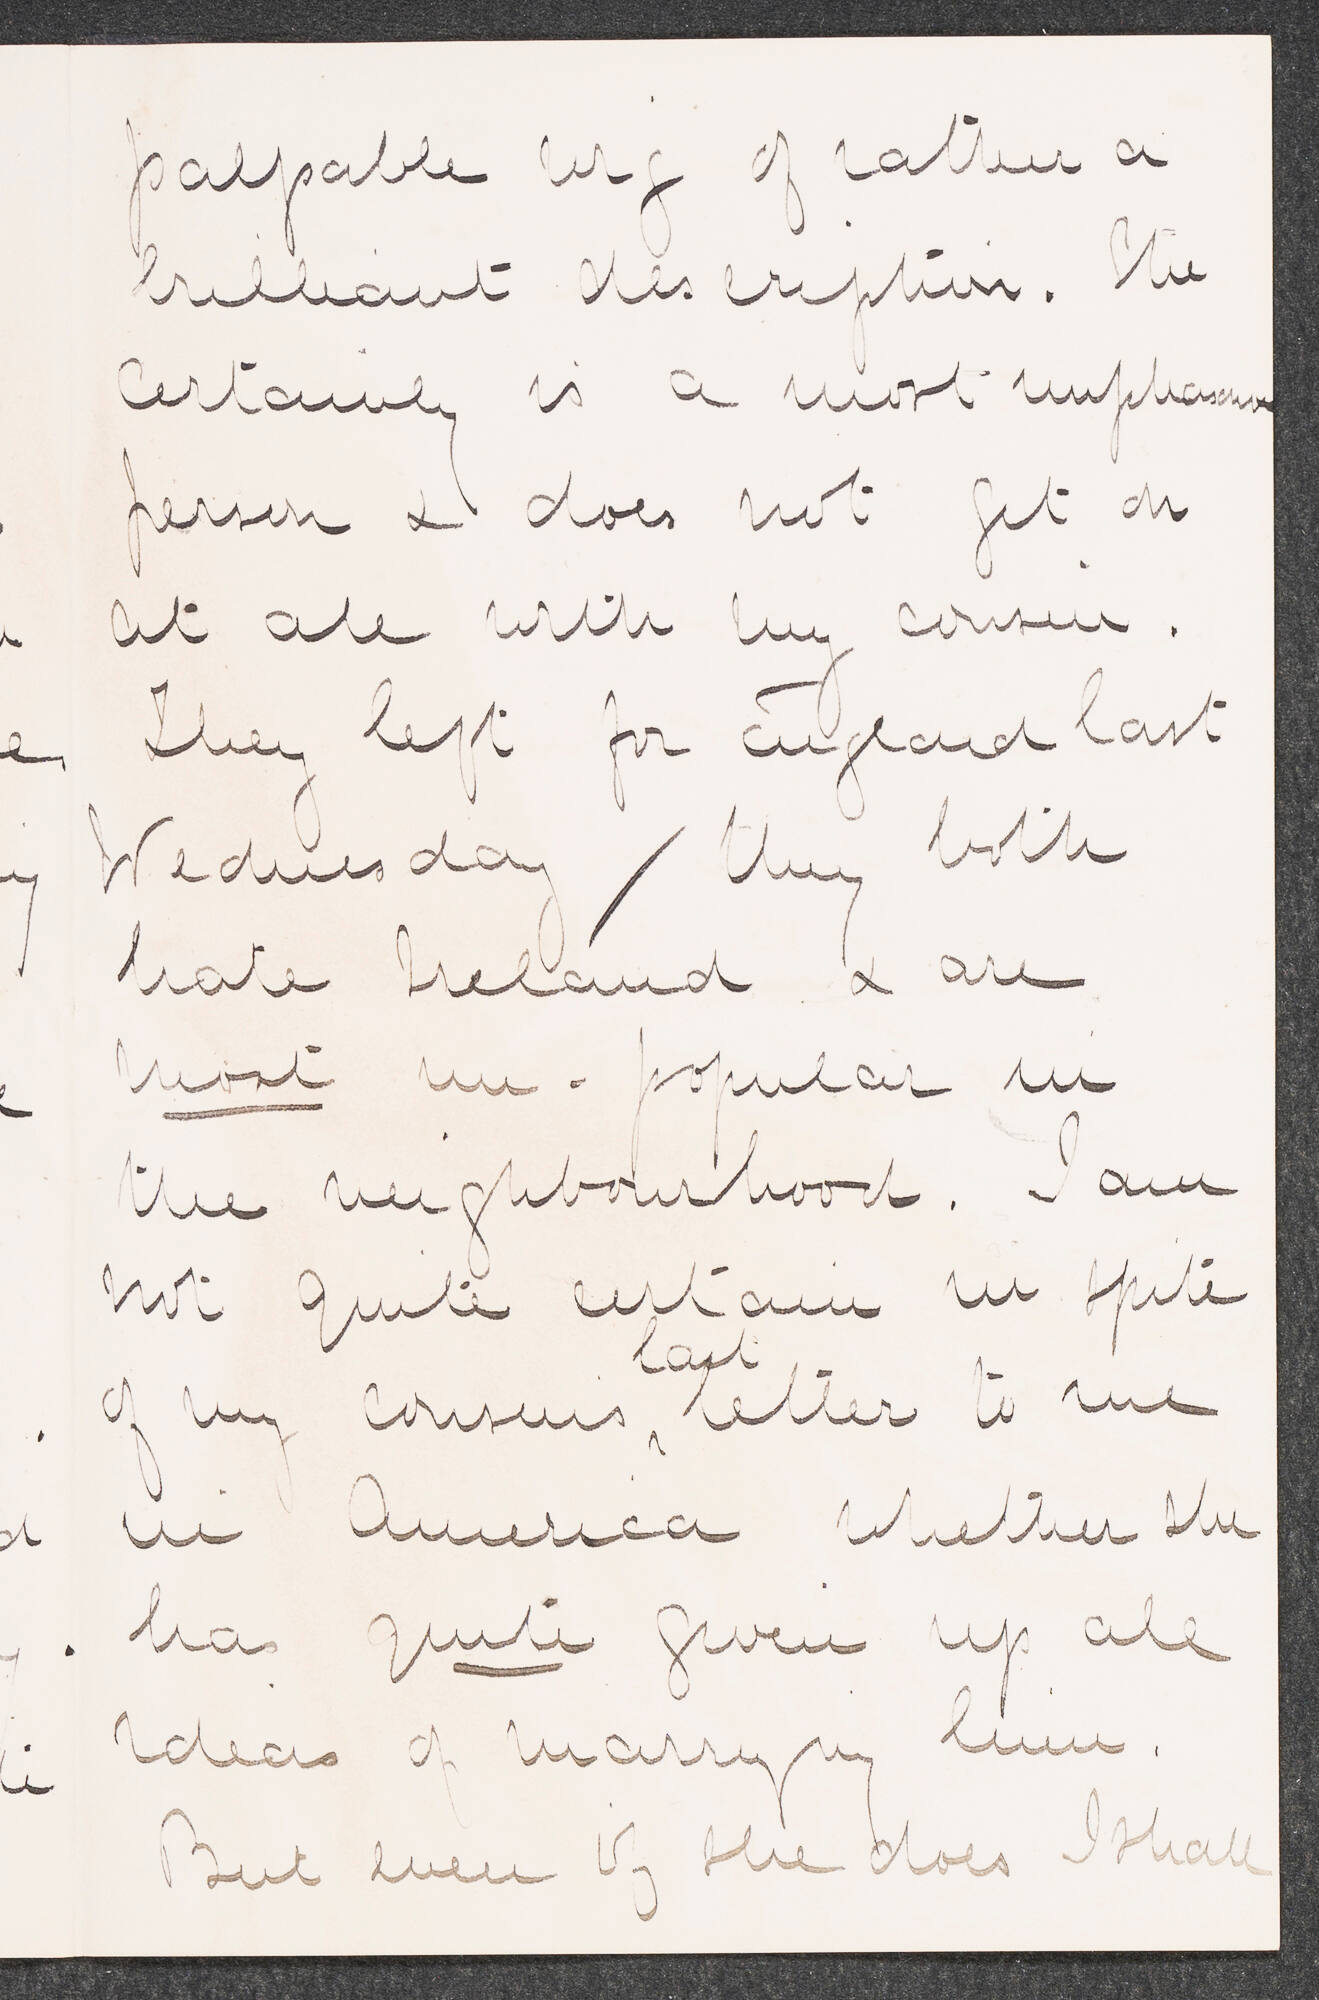 palpable wig of rather a
brilliant description. She
certainly is a most unpleasant
person & does not get on
at all with my cousin.
They left for England last
Wednesday / they both
hate Ireland & are
most un-popular in
the neighbourhood. I am
not quite certain in spite
last
of my cousins letter to me
in America whether she
has quite given up all
ideas of marrying him.
But even if she does I shall